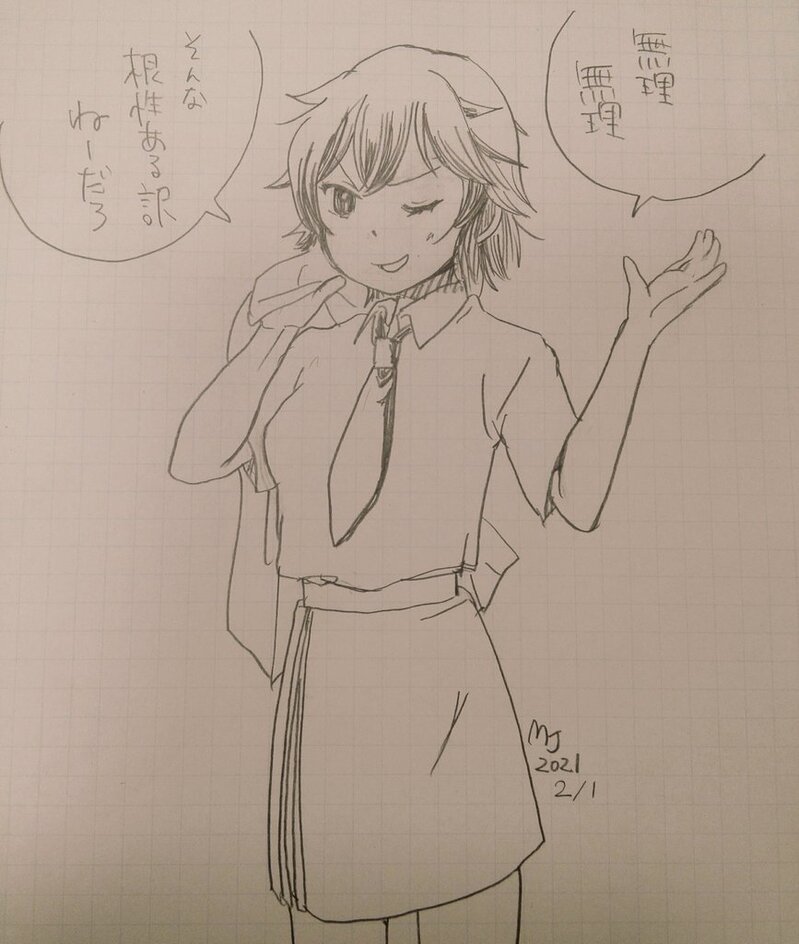 無理
無理
そんな
根性ある訳
ねーだろ
MJ
2021
2/1